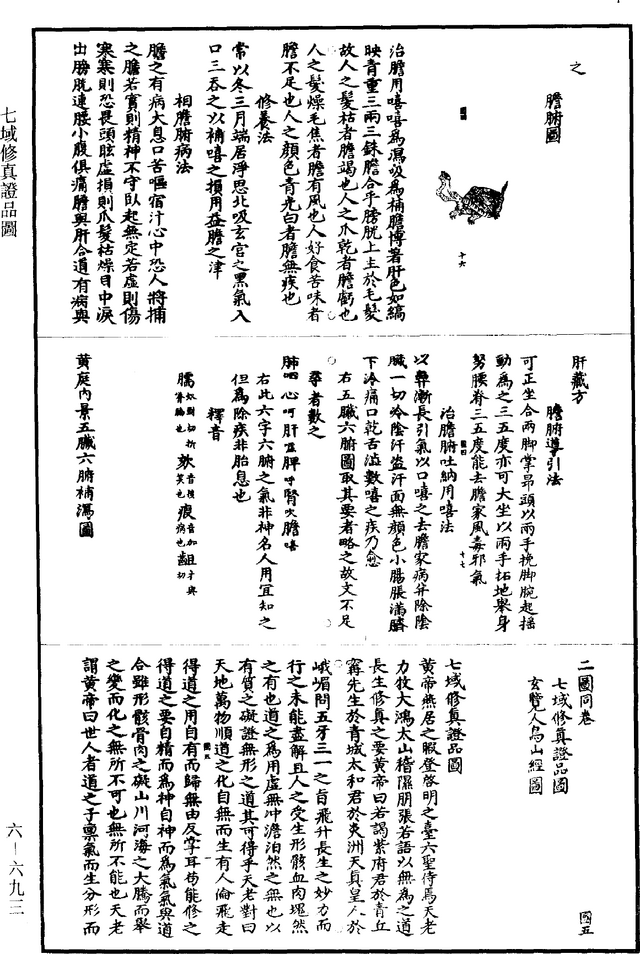 之
膽腑圖
十六
治膽用嘻嘻為瀉吸為補膽博著肝色如縞
映青重三兩三銖膽合乎膀胱上主於毛髮
故人之髮枯者膽竭也人之爪乾者膽虧也
人之髮燥毛焦者膽有風也人好食苦味者
膽不足也人之顏色青光白者膽無疾也
修養法
常以冬三月端居淨思北吸玄宮之黑氣入
口三吞之以補嘻之損用益膽之津
相膽腑病法
膽之有病大息口苦嘔宿汁心中恐人將捕
之膽若實則精神不守臥起無定若虛則傷
寒寒則恐畏頭眩虛損則爪髮枯燥目中淚
出膀胱連腰小腹俱痛膽與肝合道有病與
肝藏方
膽腑導引法
可正坐合兩脚掌昂頭以兩手挽脚腕起搖
動為之三五度亦可大坐以兩手拓地舉身
努腰脊三五度能去膽家風毒邪氣
十七
治膽腑吐納用嘻法
以鼻漸長引氣以口嘻之去膽家病并除陰
臟一切冷陰汗盜汗面無顏色小腸脹滿臍
下冷痛口乾舌澁數嘻之疾乃愈
右五臟六腑圖取其要者略之故文不足
尋者數之
肺呬心呵肝𠻘脾呼腎吹膽嘻
右此六字六腑之氣非神名人用宜知之
但為除疾非胎息也
釋音
臑奴到切折脊腸也欬音慨嗽也瘕音加病也齟才與切
黃庭內景五臟六腑補瀉圖
二圖同卷 國五
七域修真證品圖
玄覽人鳥山經圖
七域修真證品圖
黃帝燕居之暇登啓明之臺六聖侍焉天老
力牧大鴻太山稽隰朋張若語以無為之道
長生修真之要黃帝曰若謁紫府君於青丘
甯先生於青城太和君於炎洲天真皇人於
峨嵋問五牙三一之旨飛升長生之妙力而
行之未能盡解且人之受生形骸血肉塊然
之有也道之為用虛無沖澹泊然之無也以
有質之礙證無形之道其可得乎天老對曰
天地萬物順道之化自無而生有人倫飛走
得道之用自有而歸無由反掌耳苟能修之
得道之要自精而為神自神而為氣氣與道
合雖形骸骨肉之礙山川河海之大騰而舉
之變而化之無所不可也無所不能也天老
謂黃帝曰世人者道之子禀氣而生分形而
七域修真證品圖
六－六九三